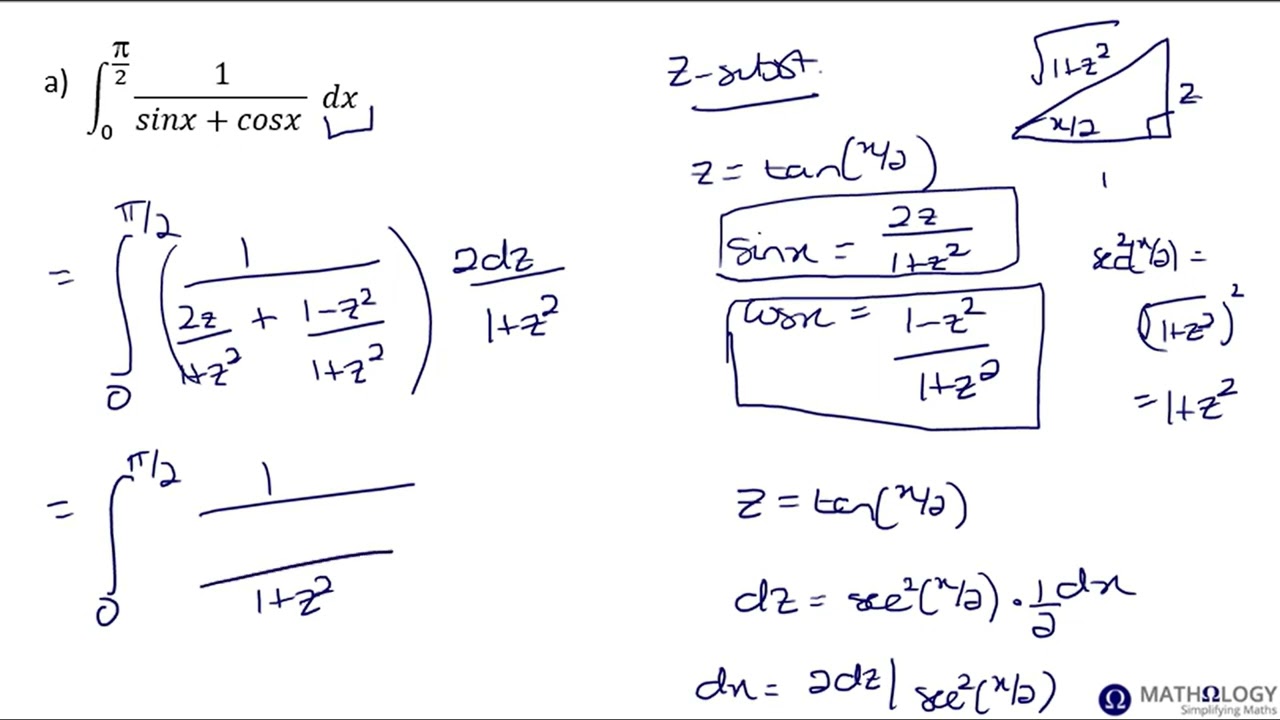 a) ∫₀^(π/2) 1/(sinx + cosx) dx
= ∫₀^(π/2) (1/(2z/(1+z²) + (1-z²)/(1+z²))) 2dz/(1+z²)
= ∫₀^(π/2) 1/( /(1+z²))
z-subst.
z = tan(x/2)
sinx = 2z/(1+z²)
cosx = (1-z²)/(1+z²)
z = tan(x/2)
dz = sec²(x/2) · 1/2 dx
dx = 2dz | sec²(x/2)
√(1+z²)
z
x/2
1
sec²(x/2) =
(√(1+z²))²
= 1+z²
MATHΩLOGY
Simplifying Maths